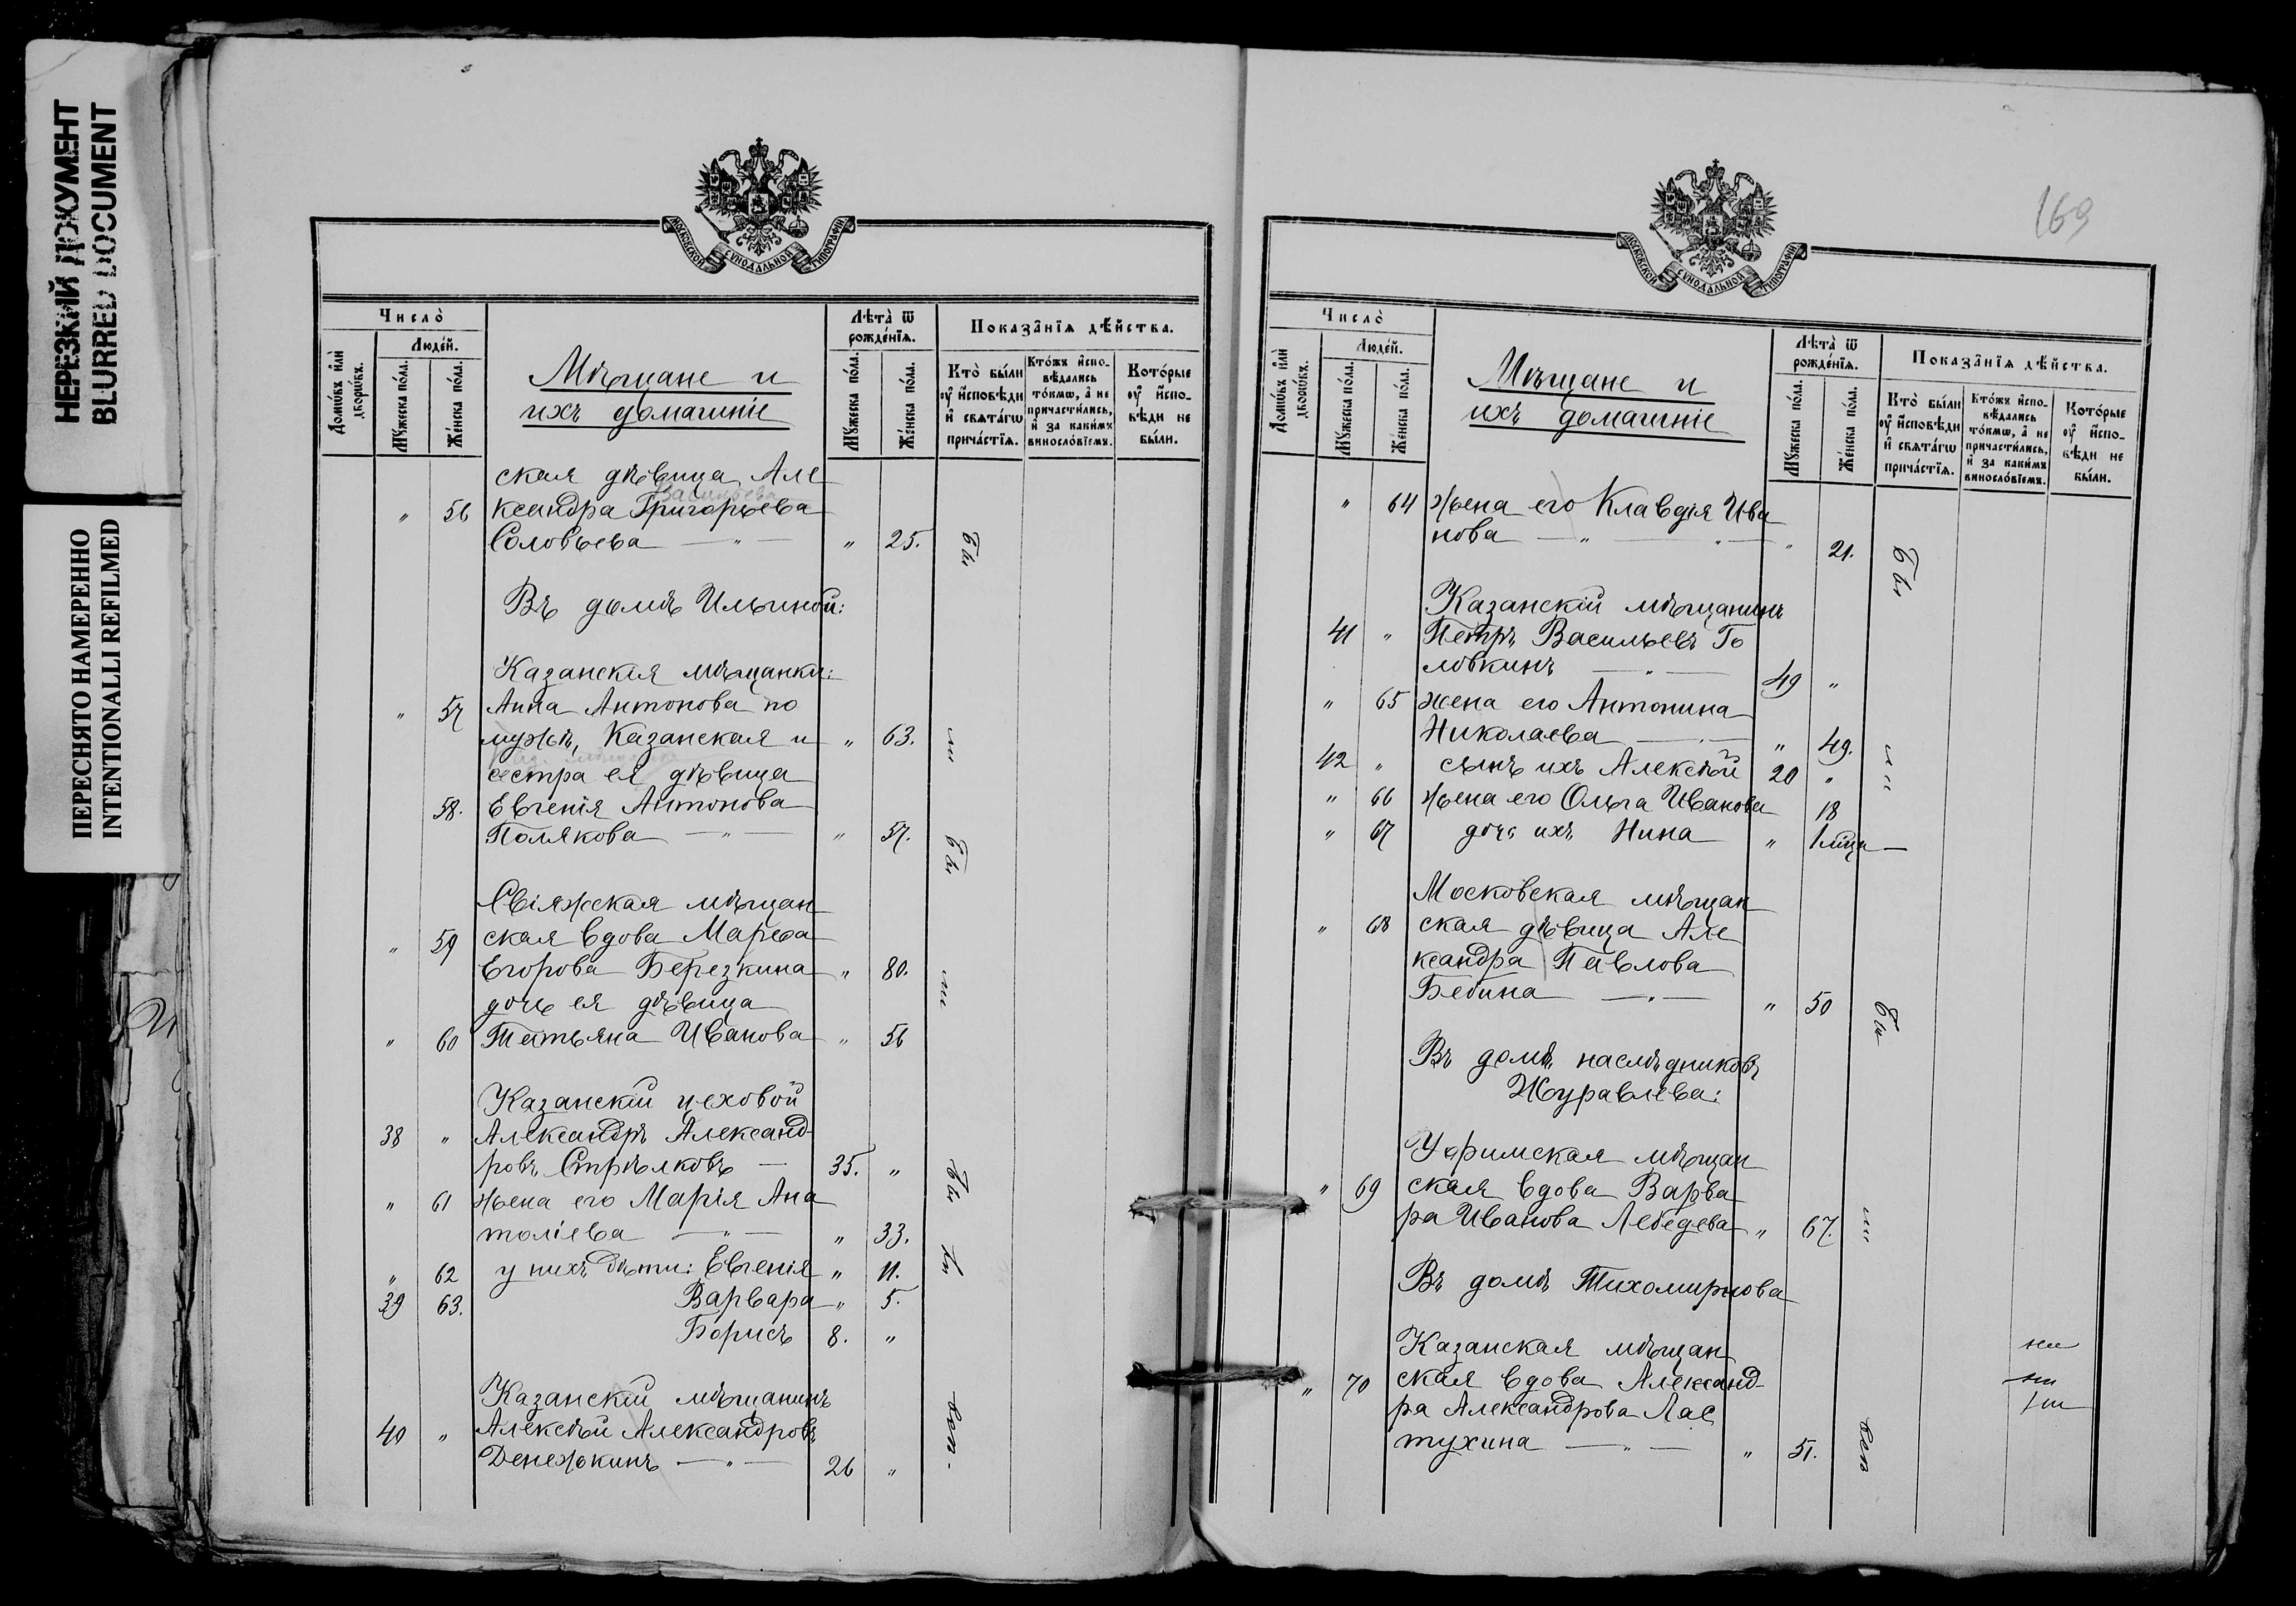 НЕРЕЗКИЙ ДОКУМЕНТ
BLURRED DOCUMENT
ПЕРЕСНЯТО НАМЕРЕННО
INTENTIONALLI REFILMED
МОСКОВСКОЙ СѴНОДАЛЬНОЙ ТИПОГРАФІИ
Число̀
Домѡ́въ и҆лѝ дворѡ́въ.
Люде́й.
Мꙋ́жеска по́ла.
Же́нска по́ла.
Мѣщане и
ихъ домашніе
Лѣта̀ ѿ рожде́нїѧ.
Мꙋ́жеска по́ла.
Же́нска по́ла.
Показа̑нїѧ дѣ́йства.
Кто̀ бы́ли ᲂу҆ и҆сповѣ́ди и҆ свѧта́гѡ прича́стїѧ.
Кто́жъ и҆сповѣ́дались то́кмѡ, а҆ не причасти́лись, и҆ за каки́мъ винословіемъ.
Кото́рые ᲂу҆ и҆сповѣ́ди не бы́ли.
ская дѣвица Але
Васильева
" 56 ксандра Григорьева
Соловьева — " — " 25. Бы
Въ домѣ Ильиной:
Казанскія мѣщанки:
" 57 Анна Антонова по
мужѣ, Казанская и " 63. ли
сестра ея дѣвица
58. Евгенія Антонова
Полякова — " — " 57. Бы
Свіяжская мѣщан
" 59 ская вдова Марѳа
Егорова Березкина " 80. ли
дочь ея дѣвица
" 60 Татьяна Иванова " 56
Казанскій цеховой
38 " Александръ Александ-
ровъ Стрѣлковъ — 35. " Бы
" 61 жена его Марія Ана
толіева — " — " 33.
" 62 у нихъ дѣти: Евгенія " 11. ли
39 63. Варвара " 5.
Борисъ 8. "
Казанскій мѣщанинъ
40 " Алексѣй Александровъ
Денежкинъ — " — 26 "
169
МОСКОВСКОЙ СѴНОДАЛЬНОЙ ТИПОГРАФІИ
Число̀
Домѡ́въ и҆лѝ дворѡ́въ.
Люде́й.
Мꙋ́жеска по́ла.
Же́нска по́ла.
Мѣщане и
ихъ домашніе
Лѣта̀ ѿ рожде́нїѧ.
Мꙋ́жеска по́ла.
Же́нска по́ла.
Показа̑нїѧ дѣ́йства.
Кто̀ бы́ли ᲂу҆ и҆сповѣ́ди и҆ свѧта́гѡ прича́стїѧ.
Кто́жъ и҆сповѣ́дались то́кмѡ, а҆ не причасти́лись, и҆ за каки́мъ винословіемъ.
Кото́рые ᲂу҆ и҆сповѣ́ди не бы́ли.
" 64 жена его Клавдія Ива
нова — " — " — " 21. Бы
Казанскій мѣщанинъ
41 " Петръ Васильевъ Го
ловкинъ — " — 49 "
" 65 жена его Антонина
Николаева — " — " 49. ли
42 " сынъ ихъ Алексѣй 20 "
" 66 жена его Ольга Иванова 18
" 67 дочь ихъ Нина " 1 мѣца —
Московская мѣщан
" 68 ская дѣвица Але
ксандра Павлова
Бебина — " — " 50 Бы
Въ домѣ наслѣдниковъ
Журавлева:
Уфимская мѣщан
" 69 ская вдова Варва
ра Иванова Лебедева " 67. ли
Въ домѣ Тихомирнова
Казанская мѣщан
" 70 ская вдова Александ-
ра Александрова Лас
тухина — " — " 51.